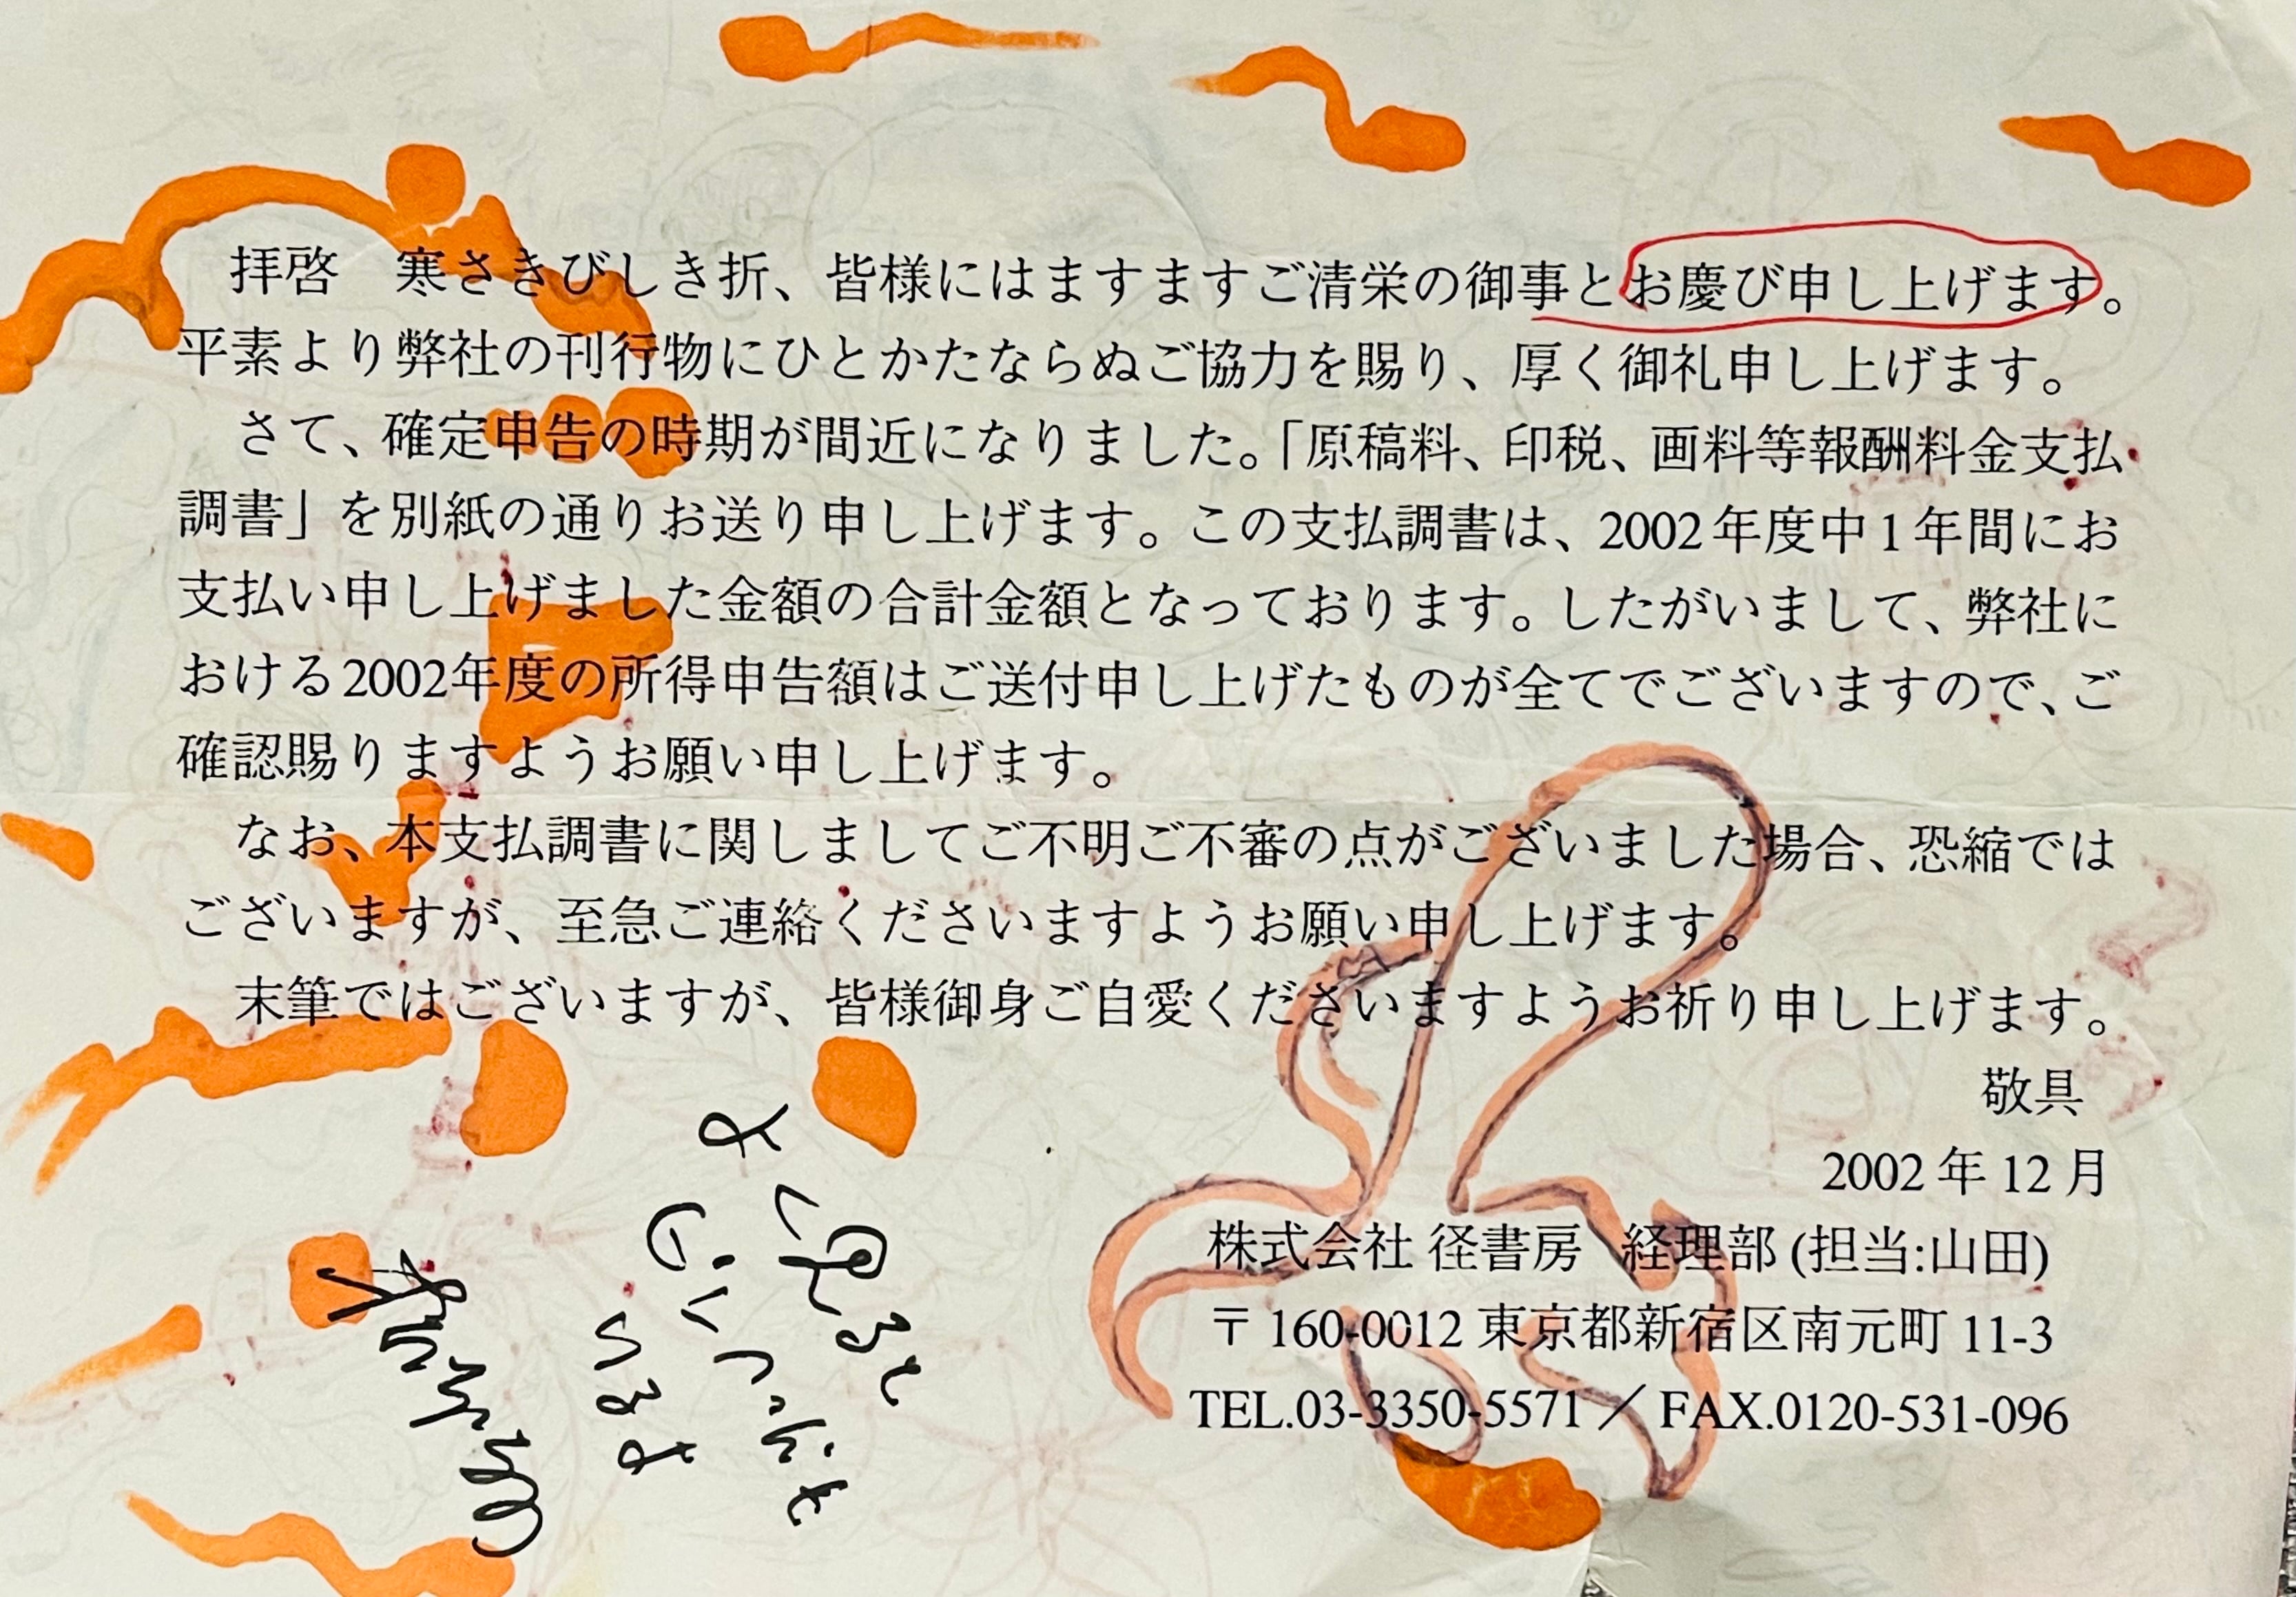 拝啓　寒さきびしき折、皆様にはますますご清栄の御事とお慶び申し上げます。
平素より弊社の刊行物にひとかたならぬご協力を賜り、厚く御礼申し上げます。
さて、確定申告の時期が間近になりました。「原稿料、印税、画料等報酬料金支払
調書」を別紙の通りお送り申し上げます。この支払調書は、2002年度中1年間にお
支払い申し上げました金額の合計金額となっております。したがいまして、弊社に
おける2002年度の所得申告額はご送付申し上げたものが全てでございますので、ご
確認賜りますようお願い申し上げます。
なお、本支払調書に関しましてご不明ご不審の点がございました場合、恐縮では
ございますが、至急ご連絡くださいますようお願い申し上げます。
末筆ではございますが、皆様御身ご自愛くださいますようお祈り申し上げます。
敬具
2002年12月
株式会社 径書房　経理部 (担当:山田)
〒160-0012 東京都新宿区南元町 11-3
TEL.03-3350-5571／FAX.0120-531-096
よく見ると